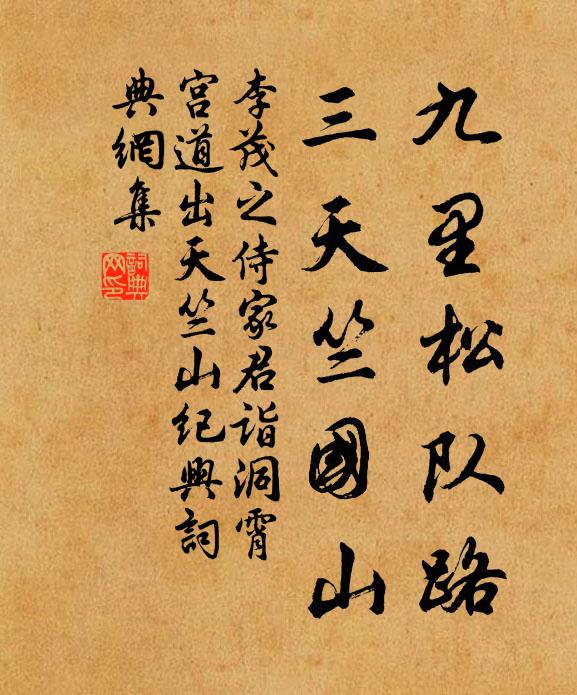 九里松队路
三天竺國山
李茂之侍家君诣洞霄
宫道出天竺山纪興詞
典網集
詞典
网印